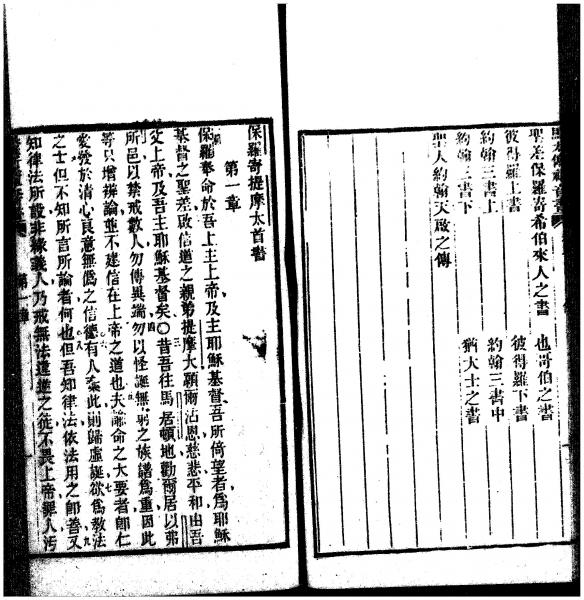 聖差保羅寄希伯來人之書 也哥伯之書
彼得羅上書 彼得羅下書
約翰三書上 約翰三書中
約翰三書下 猶大士之書
聖人約翰天啟之傳
保羅寄提摩太首書
第一章
保羅奉命於吾上主上帝及主耶穌基督吾所倚望者為耶穌
基督之聖差啟信道之親弟提摩大願爾沾恩慈悲平和由吾
父上帝及吾主耶穌基督矣〇昔吾往馬居頓地勸爾居以弗
所邑以禁戒數人勿傳異端勿以怪誕無窮之族譜為重因此
等只增辨論並不建信在上帝之道也夫諭命之大要者卽仁
愛發於清心良意無偽之信德有人棄此則歸虛誕欲為敎法
之士但不知所言所論者何也但吾知律法依法用之卽善又
知律法所設非緣義人乃戒無法違道之徒不畏上帝罪人汚
第一章